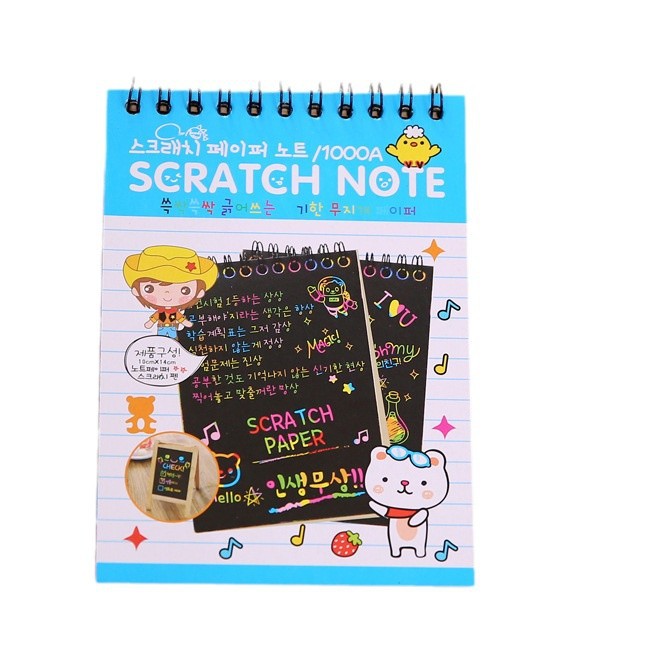 스크래치 페이퍼 노트 /1000A
SCRATCH NOTE
쓱싹쓱싹 긁어쓰는 기한 무지 이퍼
1등하는 상상
공부해야지라는 생각은 항상
학습계획표는 그저 감상
실천하지 않는게 정상
험문제는 진상
공부한것도 기억나지 않는 신기한 현상
찍어놓고 맞출꺼란 망상
MAGIC!
I U
Oh my
SCRATCH
PAPER
Hello
인생무상!!
제품구성!
노트페이퍼
스크래치 펜
CHECK!